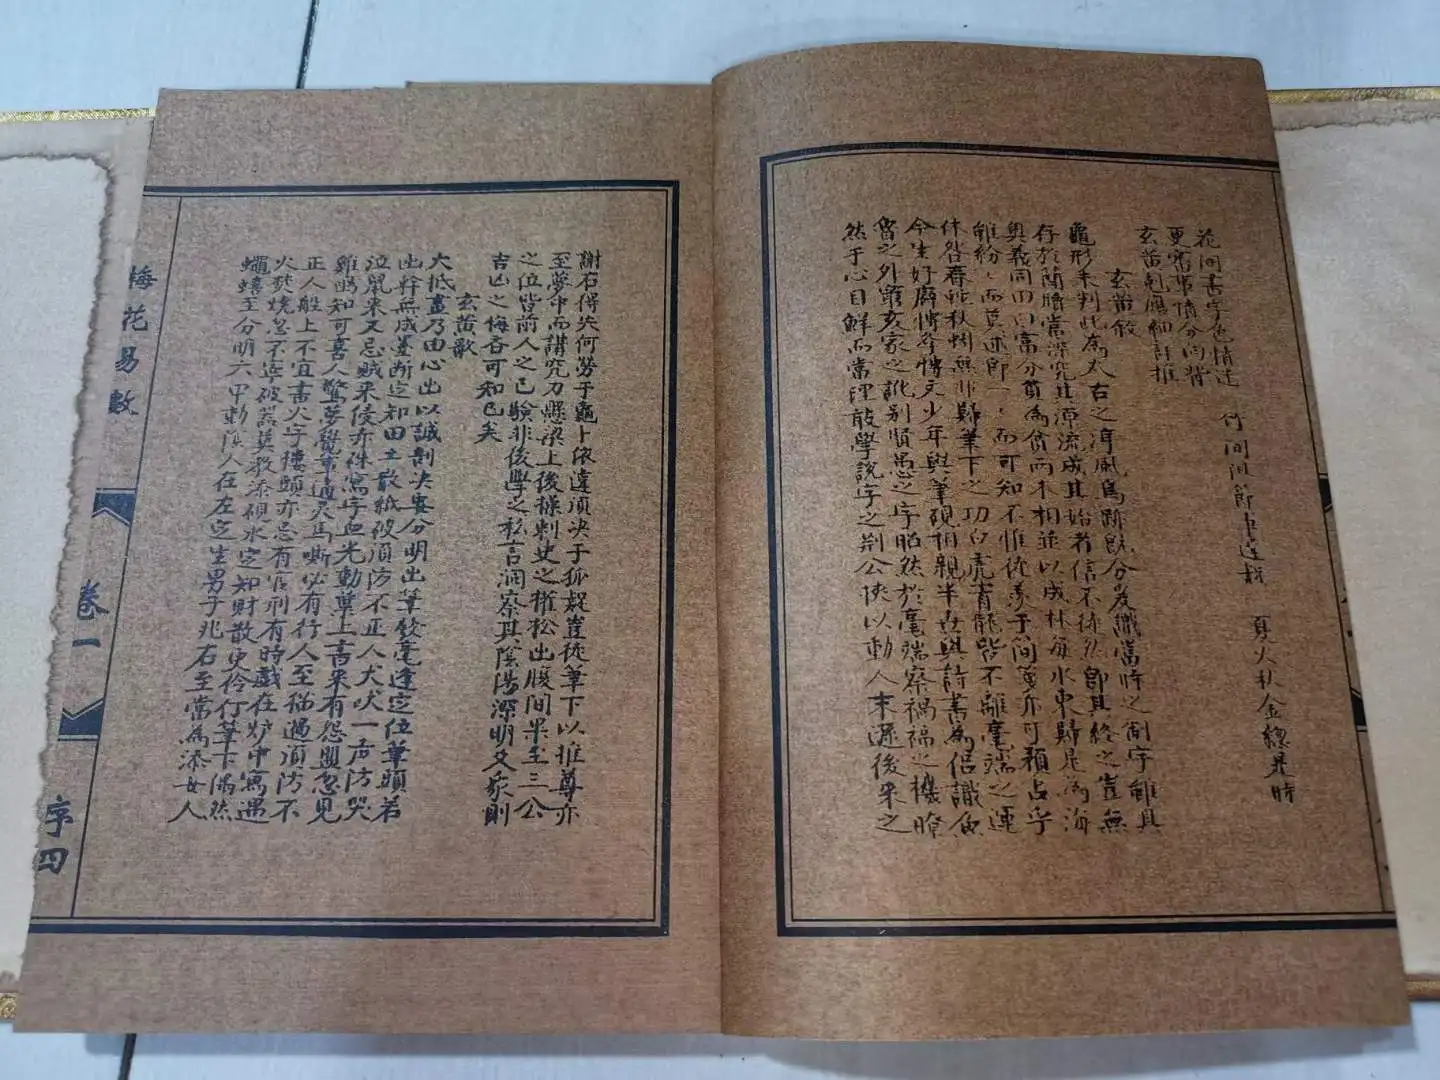 花間書字色情迷
更需事情分向背
玄黃剋應細詳推
夏火秋金總是時
玄黃敘
龜形未判此為太古之淳風鳥跡旣分爰識當時之制字雖具
存於簡牘當深究其源流成其始者信不徒然即其終之豈無
奧義同田曰富分貝為貧兩木相並以成林每水東歸是為海
雖紛ヽ而莫述即一ヽ而可知不惟徒羨于簡篇亦可預占乎
休咎春蛇秋蚓無非歸筆下之功白虎青龍皆不離毫端之運
今生好癖博學博文少年與筆硯相親半世與詩書為侶識魚
魯之外亥豕之訛別賢愚之字昭然於毫端察禍福之機瞭
然于心目鮮而當理敢學說字之荆公俠以動人未遜後來之
謝石得失何勞于龜卜依違須决于狐疑豈徒筆下以推尊亦
至夢中而講究刀懸梁上後操刺史之權松出腹間果至三公
之位皆前人之已驗非後學之私言洞察其陰陽深明爻象則
吉凶之悔吝可知已矣
玄黄歌
大低畫乃由心出以誠剖决要分明出筆發毫逢定位筆頭若
出幹無成墨斷定知田土散紙破須防不正人犬吠一声防哭
泣鼠來又忌賊來侵亦硃寫字血光動尊上書來有怨盟忽見
雞鳴知可喜人驚夢覺事通天馬嘶必有行人至貓過須防不
正人船上不宜書火字樓頭亦忌有官刑有時戲在炉中寫遇
火焚燒忽不寧破器莫教添硯水定知財散更伶仃筆下偶然
蠅蟻至分明六甲動陰人在左定生男子兆右至當為添女人
梅花易數
卷一
序四